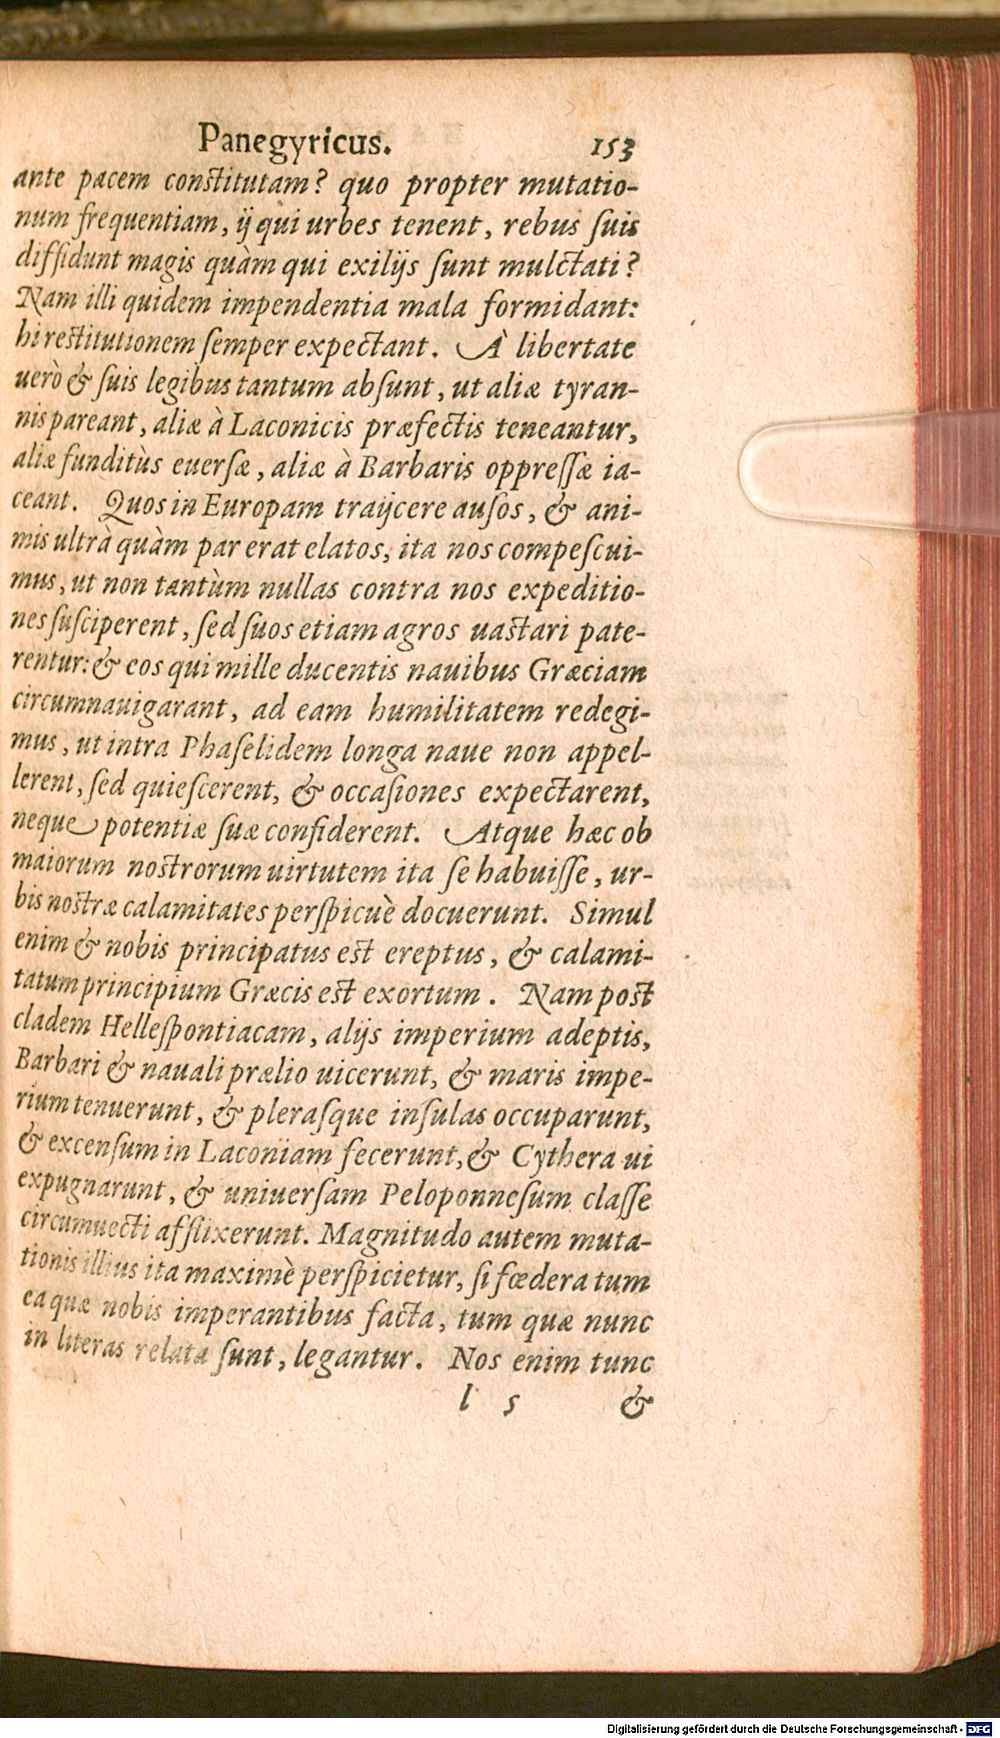 Panegyricus. 153
ante pacem constitutam? quo propter mutatio-
num frequentiam, ij qui urbes tenent, rebus suis
diffidunt magis quàm qui exilijs sunt mulctati?
Nam illi quidem impendentia mala formidant:
hi restitutionem semper expectant. À libertate
uerò & suis legibus tantum absunt, ut aliæ tyran-
nis pareant, aliæ à Laconicis præfectis teneantur,
aliæ funditùs euersæ, aliæ à Barbaris oppressæ ia-
ceant. Quos in Europam traijcere ausos, & ani-
mis ultrà quàm par erat elatos, ita nos compescui-
mus, ut non tantùm nullas contra nos expeditio-
nes susciperent, sed suos etiam agros uastari pate-
rentur: & eos qui mille ducentis nauibus Græciam
circumnauigarant, ad eam humilitatem redegi-
mus, ut intra Phaselidem longa naue non appel-
lerent, sed quiescerent, & occasiones expectarent,
neque potentiæ suæ confiderent. Atque hæc ob
maiorum nostrorum uirtutem ita se habuisse, ur-
bis nostræ calamitates perspicuè docuerunt. Simul
enim & nobis principatus est ereptus, & calami-
tatum principium Græcis est exortum. Nam post
cladem Hellespontiacam, alijs imperium adeptis,
Barbari & nauali prælio uicerunt, & maris impe-
rium tenuerunt, & plerasque insulas occuparunt,
& excensum in Laconiam fecerunt, & Cythera ui
expugnarunt, & uniuersam Peloponnesum classe
circumuecti afflixerunt. Magnitudo autem muta-
tionis illius ita maximè perspicietur, si fœdera tum
ea quæ nobis imperantibus facta, tum quæ nunc
in literas relata sunt, legantur. Nos enim tunc
l 5 &
Digitalisierung gefördert durch die Deutsche Forschungsgemeinschaft - DFG